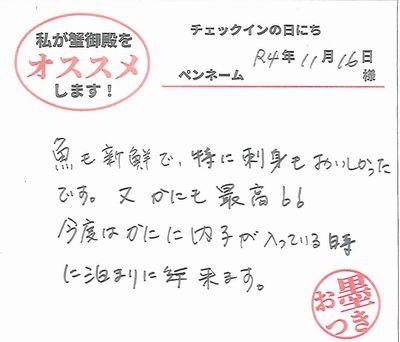 私が蟹御殿を
オススメ
します!
チェックインの日にち
R4年11月16日
ペンネーム 様
魚も新鮮で、特に刺身もおいしかった
です。又かにも最高👍
今度はかにに内子が入っている時
に泊まりに来ます。
お墨つき